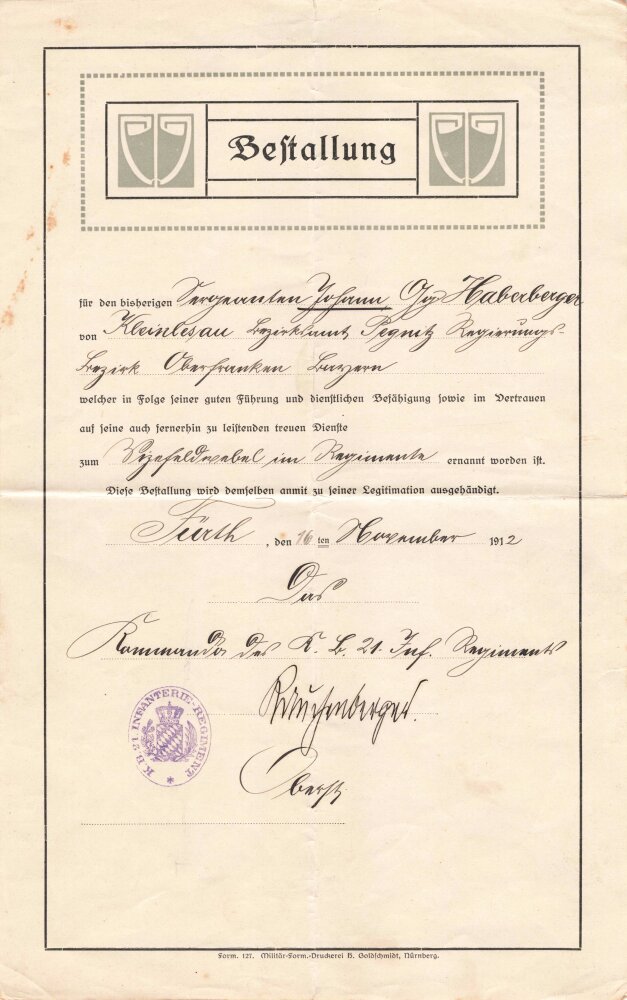 Bestallung
für den bisherigen Sergeanten Johann Gg Haberberger
von Kleinlesau Bezirksamt Pegnitz Regierungs-
bezirk Oberfranken Bayern
welcher in Folge seiner guten Führung und dienstlichen Befähigung sowie im Vertrauen
auf seine auch fernerhin zu leistenden treuen Dienste
zum Vizefeldwebel im Regimente ernannt worden ist.
Diese Bestallung wird demselben anmit zu seiner Legitimation ausgehändigt.
Fürth, den 16ten November 1912
Das
Kommando des K. B. 21. Inf. Regiments
K.B. 21 INFANTERIE-REGIMENT.
Oberst.
Form. 127. Militär-Form.-Druckerei B. Goldschmidt, Nürnberg.